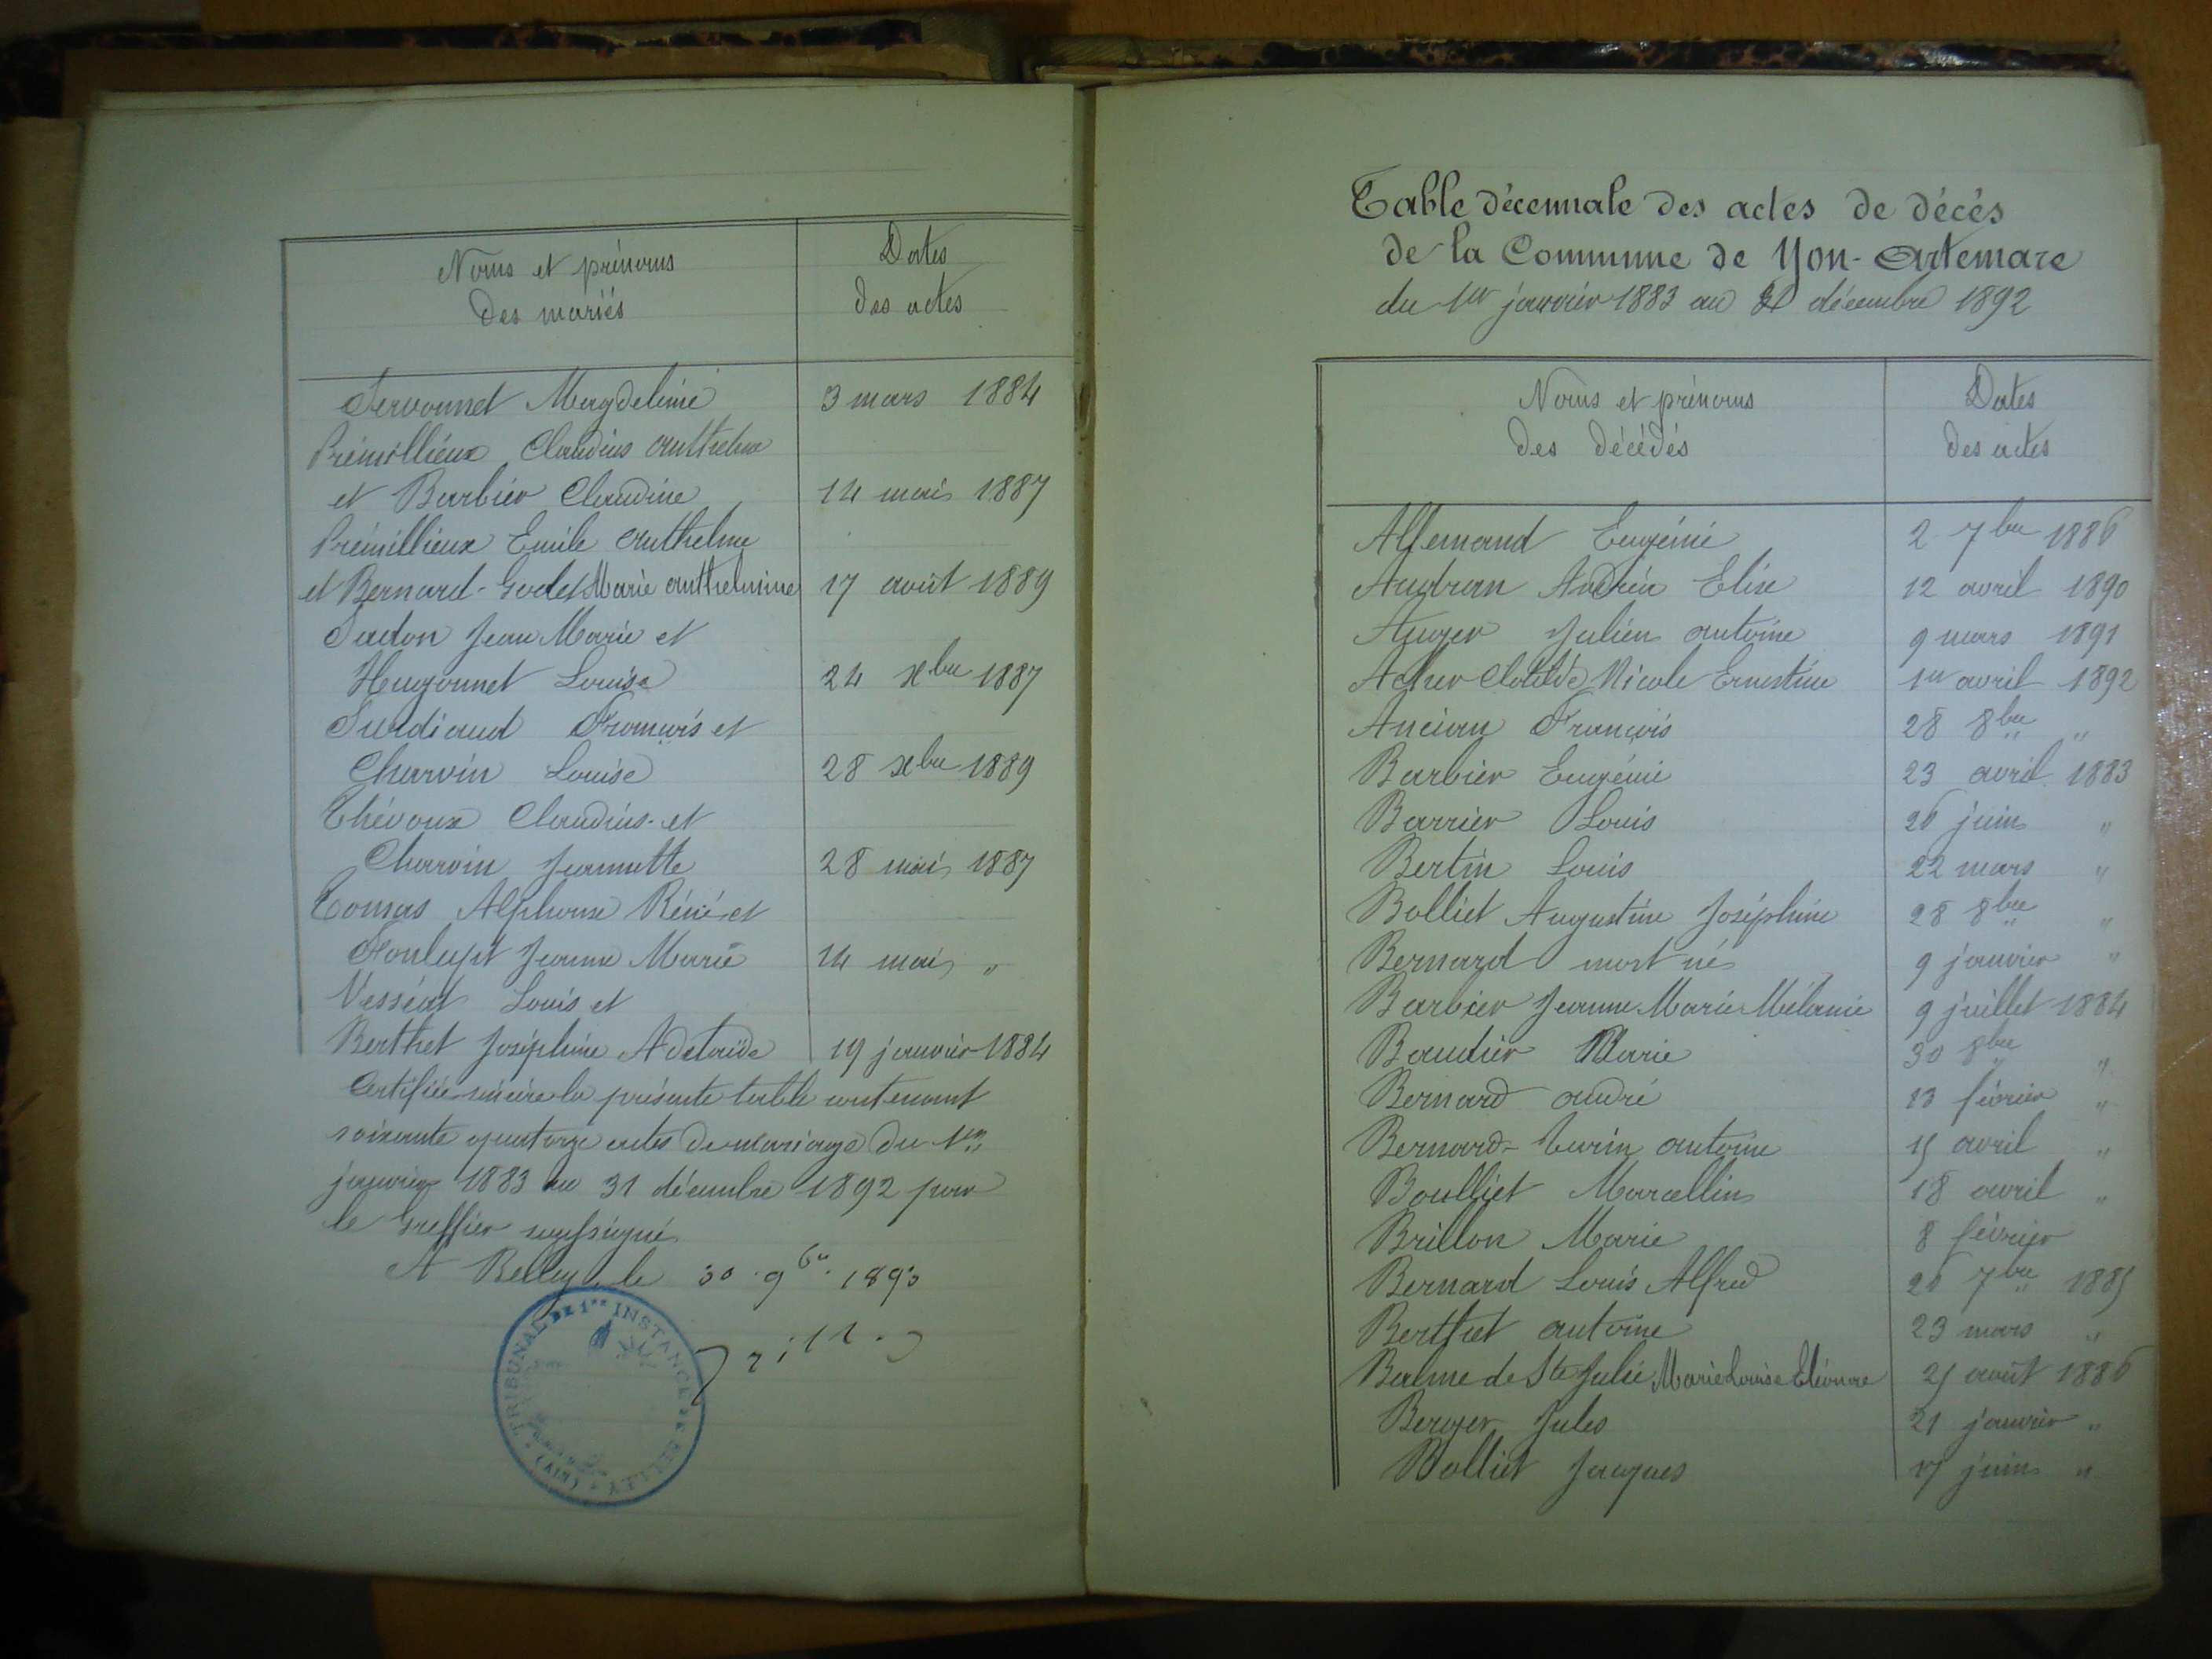 Noms et prénoms
des mariés
Dates
des actes
Servonnet Magdeleine 3 mars 1884
Prémillieux Claudius Anthelme
et Barbier Claudine 14 mai 1887
Prémillieux Emile Anthelme
et Bernard-Godet Marie Anthelmine 17 août 1889
Sadon Jean Marie et
Hugonnet Louise 24 xbre 1887
Surdiaud François et
Charvin Louise 28 xbre 1889
Thévoux Claudius et
Charvin Jeannette 28 mai 1887
Tomas Alphonse Réné et
Fonlupt Jeanne Marie 14 mai "
Vesséat Louis et
Berthet Joséphine Adelaïde 19 janvier 1884
Certifiée sincère la présente table contenant
soixante quatorze actes de mariage du 1er
janvier 1883 au 31 décembre 1892 par
le Greffier soussigné
A Belley le 30 9bre 1893
TRIBUNAL DE 1re INSTANCE DE BELLEY (AIN)
Table décennale des actes de décès
de la Commune de Yon-Artemare
du 1er janvier 1883 au 31 décembre 1892
Noms et prénoms
des décédés
Dates
des actes
Allemand Eugénie 2 7bre 1886
Audran Andréa Elise 12 avril 1890
Auger Julien Antoine 9 mars 1891
Acher Clotilde Nicole Ernestine 1er avril 1892
Ancian François 28 8bre "
Barbier Eugénie 23 avril 1883
Barrier Louis 26 juin "
Bertin Louis 22 mars "
Bolliet Augustine Joséphine 28 8bre "
Bernard mort né 9 janvier "
Barbier Jeanne Marie Mélanie 9 juillet 1884
Baudier Marie 30 8bre "
Bernard André 13 février "
Bernard-Turin Antoine 15 avril "
Boulliet Marcellin 18 avril "
Brillon Marie 8 février
Bernard Louis Alfred 26 7bre 1885
Berthet Antoine 23 mars "
Balme de Ste Julie Marie Louise Eléonore 25 août 1886
Berger Jules 21 janvier "
Bolliet Jacques 17 juin "